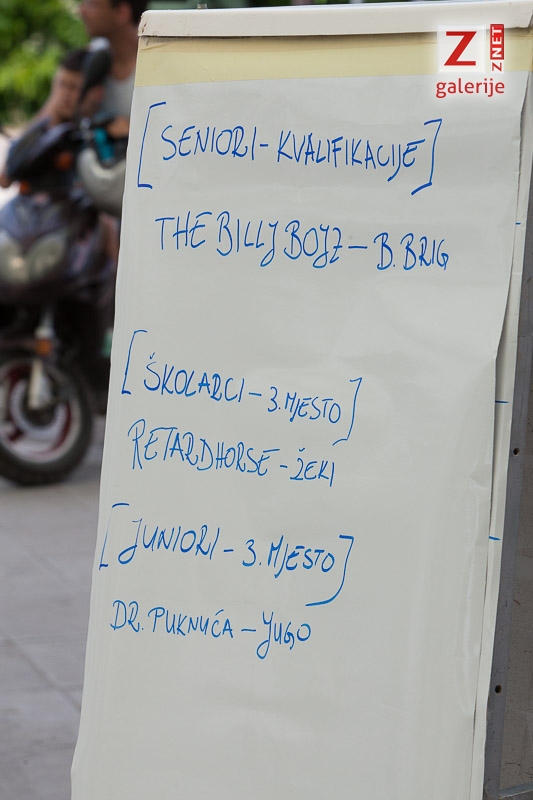 Z ZNET
galerije
[SENIORI - KVALIFIKACIJE]
THE BILLY BOYZ - B. BRIG
[ŠKOLARCI - 3. MJESTO]
RETARDHORSE - ŽEKI
[JUNIORI - 3. MJESTO]
DR. PUKNUĆA - YUGO